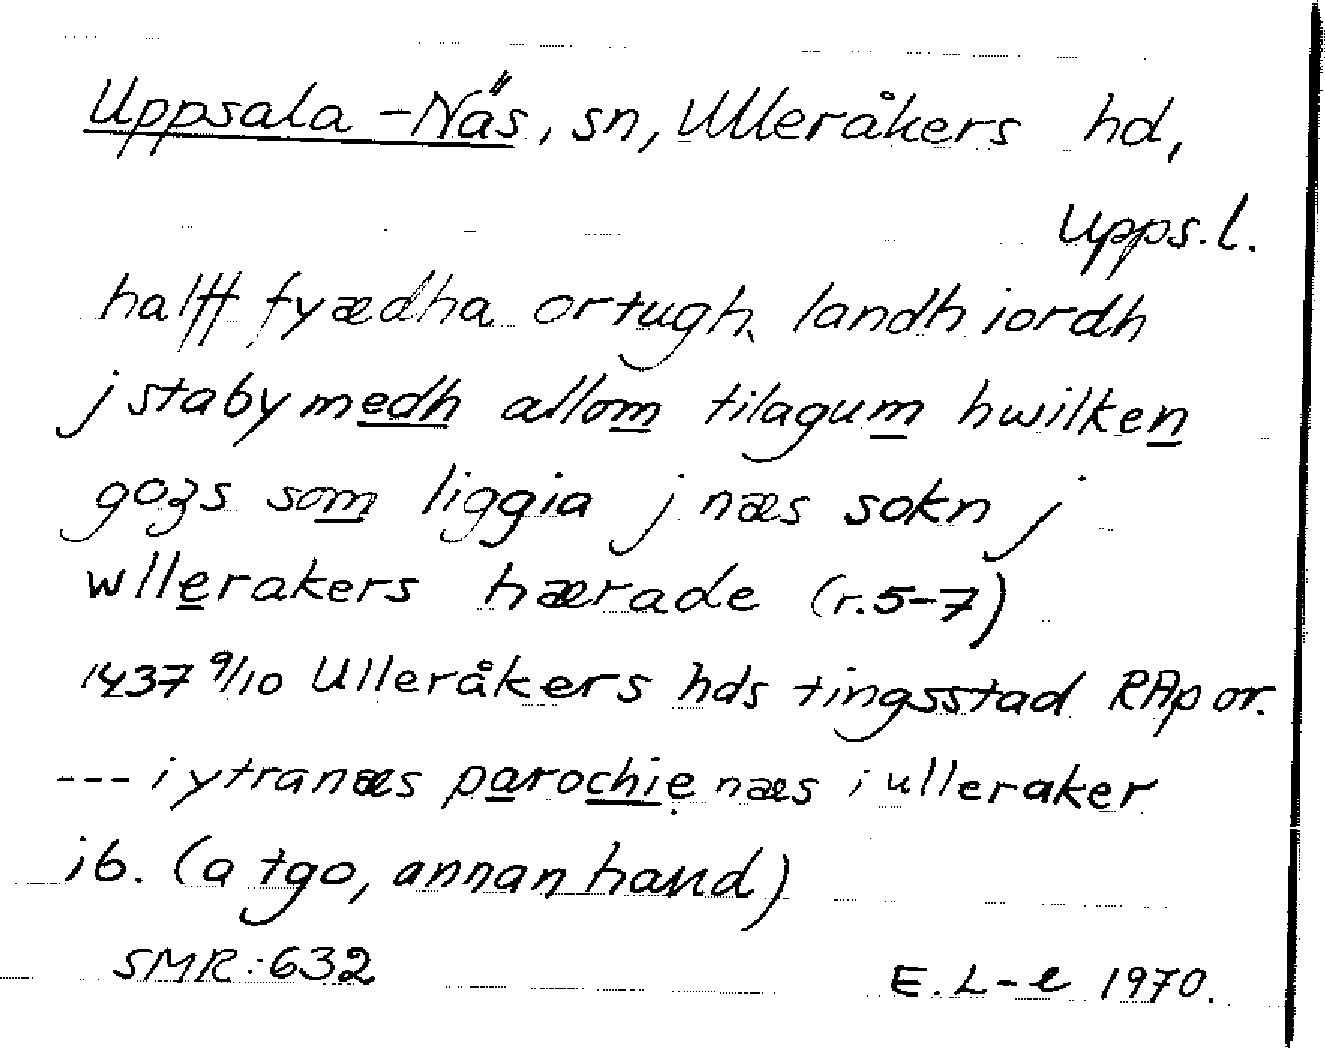 Uppsala-Näs, sn, Ulleråkers hd,
Upps.l.
halff fyædha ortugh landh iordh
j staby medh allom tilagum hwilken
gozs som liggia j næs sokn j
wllerakers hærade (r.5-7)
1437 9/10 Ulleråkers hds tingsstad RAp or.
--- i ytranæs parochie næs i ulleraker
ib. (a tgo, annan hand)
SMR:632
E.L-e 1970.